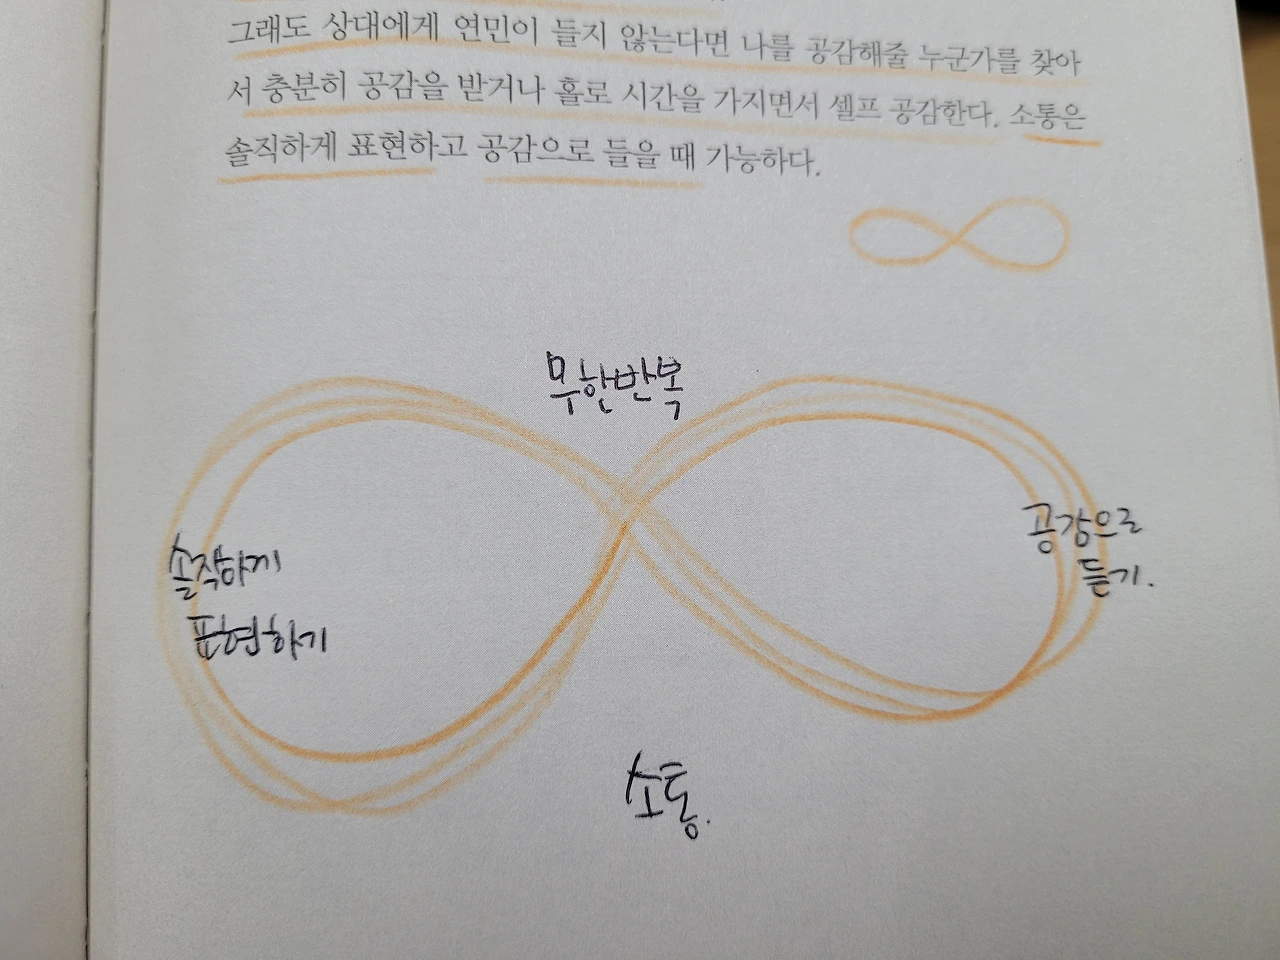 그래도 상대에게 연민이 들지 않는다면 나를 공감해줄 누군가를 찾아
서 충분히 공감을 받거나 홀로 시간을 가지면서 셀프 공감한다. 소통은
솔직하게 표현하고 공감으로 들을 때 가능하다.
무한반복
솔직하게
표현하기
공감으로
듣기.
소통.